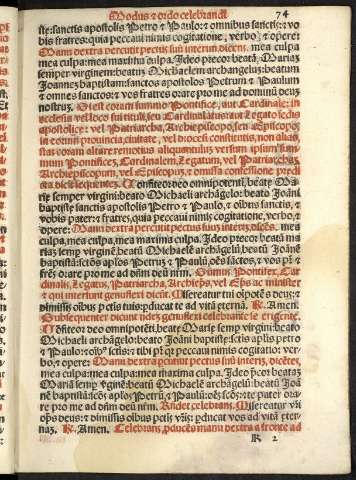 Modus et ordo celebrandi 74
ste: sanctis apostolis Petro et Paulo: et omnibus sanctis: et vo
bis fratres: quia peccaui nimis cogitatione, verbo, et opere:
Manu dextra percutit pectus suū interim dicens. mea culpa
mea culpa: mea maxima culpa. Ideo precor: beatā Mariaz
semper virginem: beatum Michaelem archangelū: beatum
Joannez baptistam: sanctos apostolos Petrum et Paulum
et omnes sanctos: et vos fratres orare pro me ad dominū deuz
nostrum. Si est coram summo Pontifice, aut Cardinale: in
ecclesia vel loco sui tituli, seu Cardinalatus: aut Legato sedis
apostolice: vel Patriarcha, Archiepiscopo, seu Episcopo,
in eorum prouincia, ciuitate, vel diocesi constitutis, non alias,
stat coram altare aliquantulum versus ipsum sum
mum Pontificem, Cardinalem, Legatum, vel Patriarchaz
Archiepiscopum, vel Episcopum, et omissa confessione predi
cta dicit sequentez. Cōfiteor deo omnipotenti, beate Ma
rie semper virgini: beato Michaeli archāgelo: beato Joāni
baptiste: sanctis apostolis Petro et Paulo, et oībus sanctis, et
vobis pater: et fratres, quia peccaui nimis cogitatione, verbo, et
opere: Manu dextra percutit pectus suuz interī dicēs. mea
culpa, mea culpa, mea maxima culpa. Ideo precor: beatā Ma
riaz semp virginē beatū Michaelē archāgelū: beatū Joānē
baptistā: sctōs aplos Petruz et Paulū, oēs sctōs, et vos pr̄ et
frēs orare pro me ad dn̄m deū nrm̄. Sūmus Pontifex, Car
dinalis, Legatus, Patriarcha, Archieps, vel Eps ac minister
et qui intersunt genuflexi dicūt. Misereatur tui oīpotēs deus, et
dimissis oībus pctis tuis: pducat te ad vitā eternā. R. Amen.
Subsequenter dicunt idez genuflexi celebrante se erigente.
Cōfiteor deo omnipotēti, beate Marie semp virgini: beato
Michaeli archāgelo: beato Joāni baptiste: sctis aplis petro
et Paulo: oībus sctis: et tibi pr̄ qr peccaui nimis cogitatiōe: ver
bo, et opere: Manu dextra percutiendo pectus suū interī, dicētes,
mea culpa: mea culpa: mea maxima culpa. Ideo pcor: beataz
Mariā semp vginē: beatū Michaelē archāgelū: beatū Joā
nē baptistā: sctōs aplos Petrū, et Paulū: oēs sctōs: et te pater ora
re pro me ad dn̄m deū nrm̄. Rn̄det celebrans. Misereatur vri
oīps deus: et dimissis oībus pctis vris: pducat vos ad vitā eter-
naz. R. Amen. Celebrans, pducēs manū dextrā a fronte ad
R 2